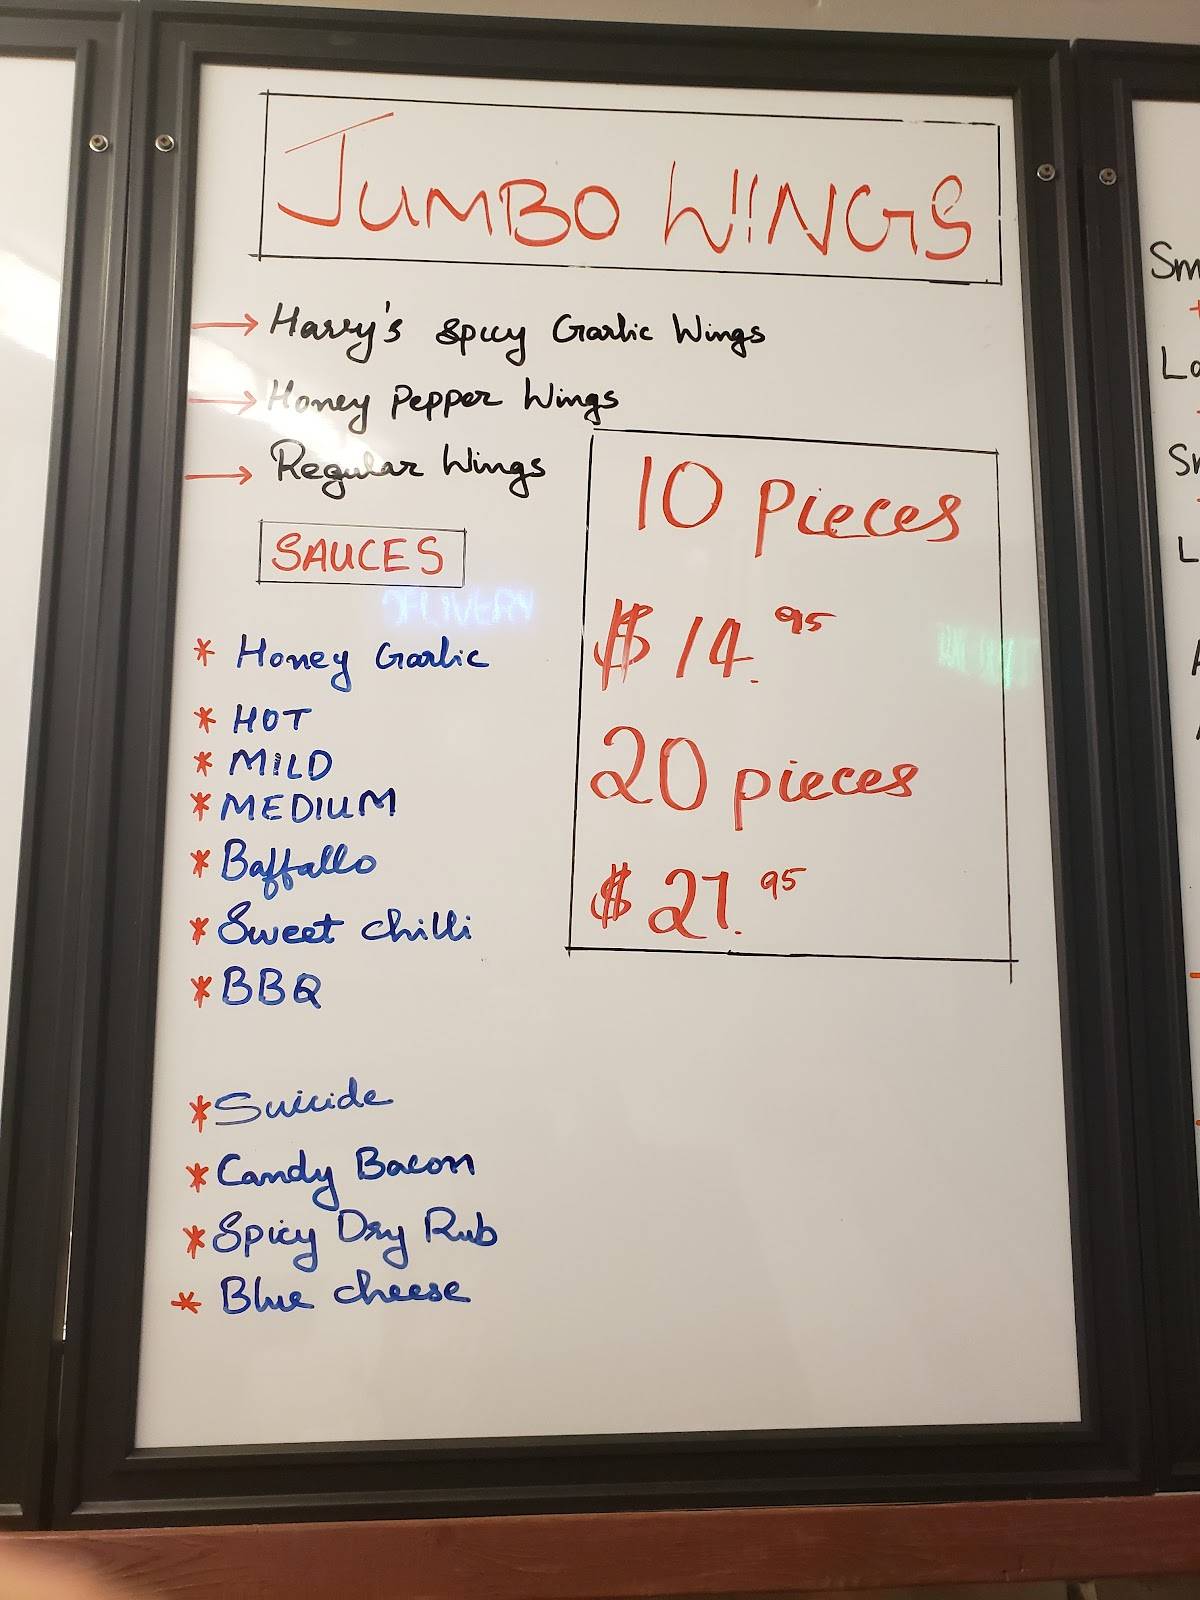 JUMBO WINGS
→ Harry's spicy Garlic Wings
→ Honey Pepper Wings
→ Regular Wings
10 pieces
$14.95
20 pieces
$27.95
SAUCES
DELIVERY
* Honey Garlic
* HOT
* MILD
* MEDIUM
* Baffallo
* Sweet chilli
* BBQ
* Suicide
* Candy Bacon
* Spicy Dry Rub
* Blue cheese
Sm
Sm
L